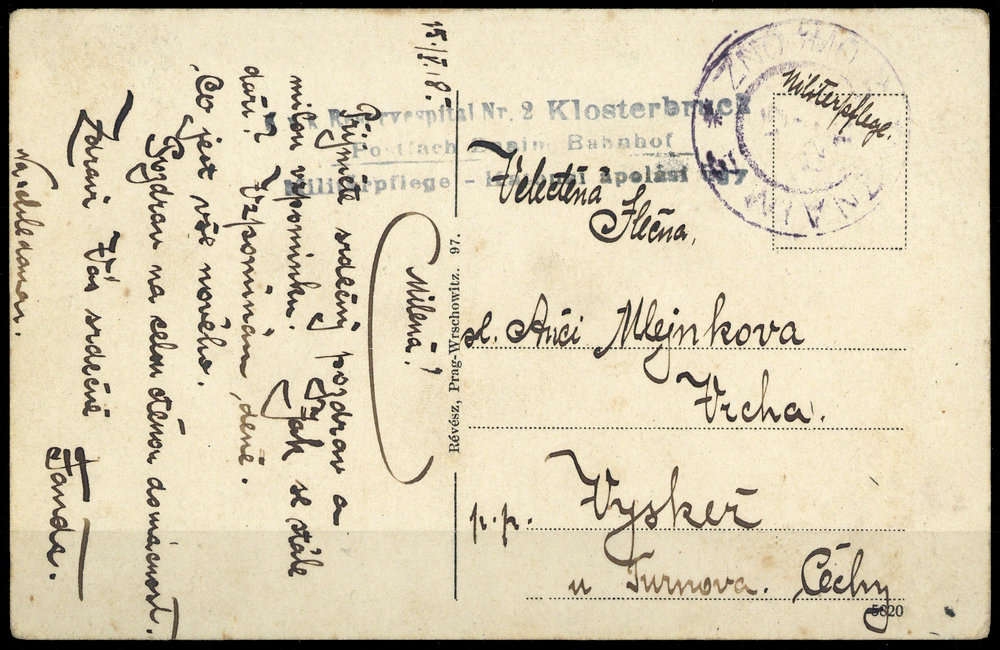 15./V. 18.
Milená!
Přijměte srdečný pozdrav a
milou vzpomínku. Jak se stále
daří? Vzpomínám denně.
Co jest vše nového.
Pozdrav na celou ctěnou domácnost.
Zdraví Vás srdečně
Fanda.
Na shledanou.
K. u. k. Reservespital Nr. 2 Klosterbruck
Postfach Bahnhof
Militärpflege – ápolási ügy
Révész, Prag-Wrschowitz. 97.
ZNOJMO
ZNAIM
Militärpflege.
Velectěná
Slečna,
sl. Anči Mlejnkova
Vrcha.
p.p. Vyskeř
u Turnova. Čechy
5820